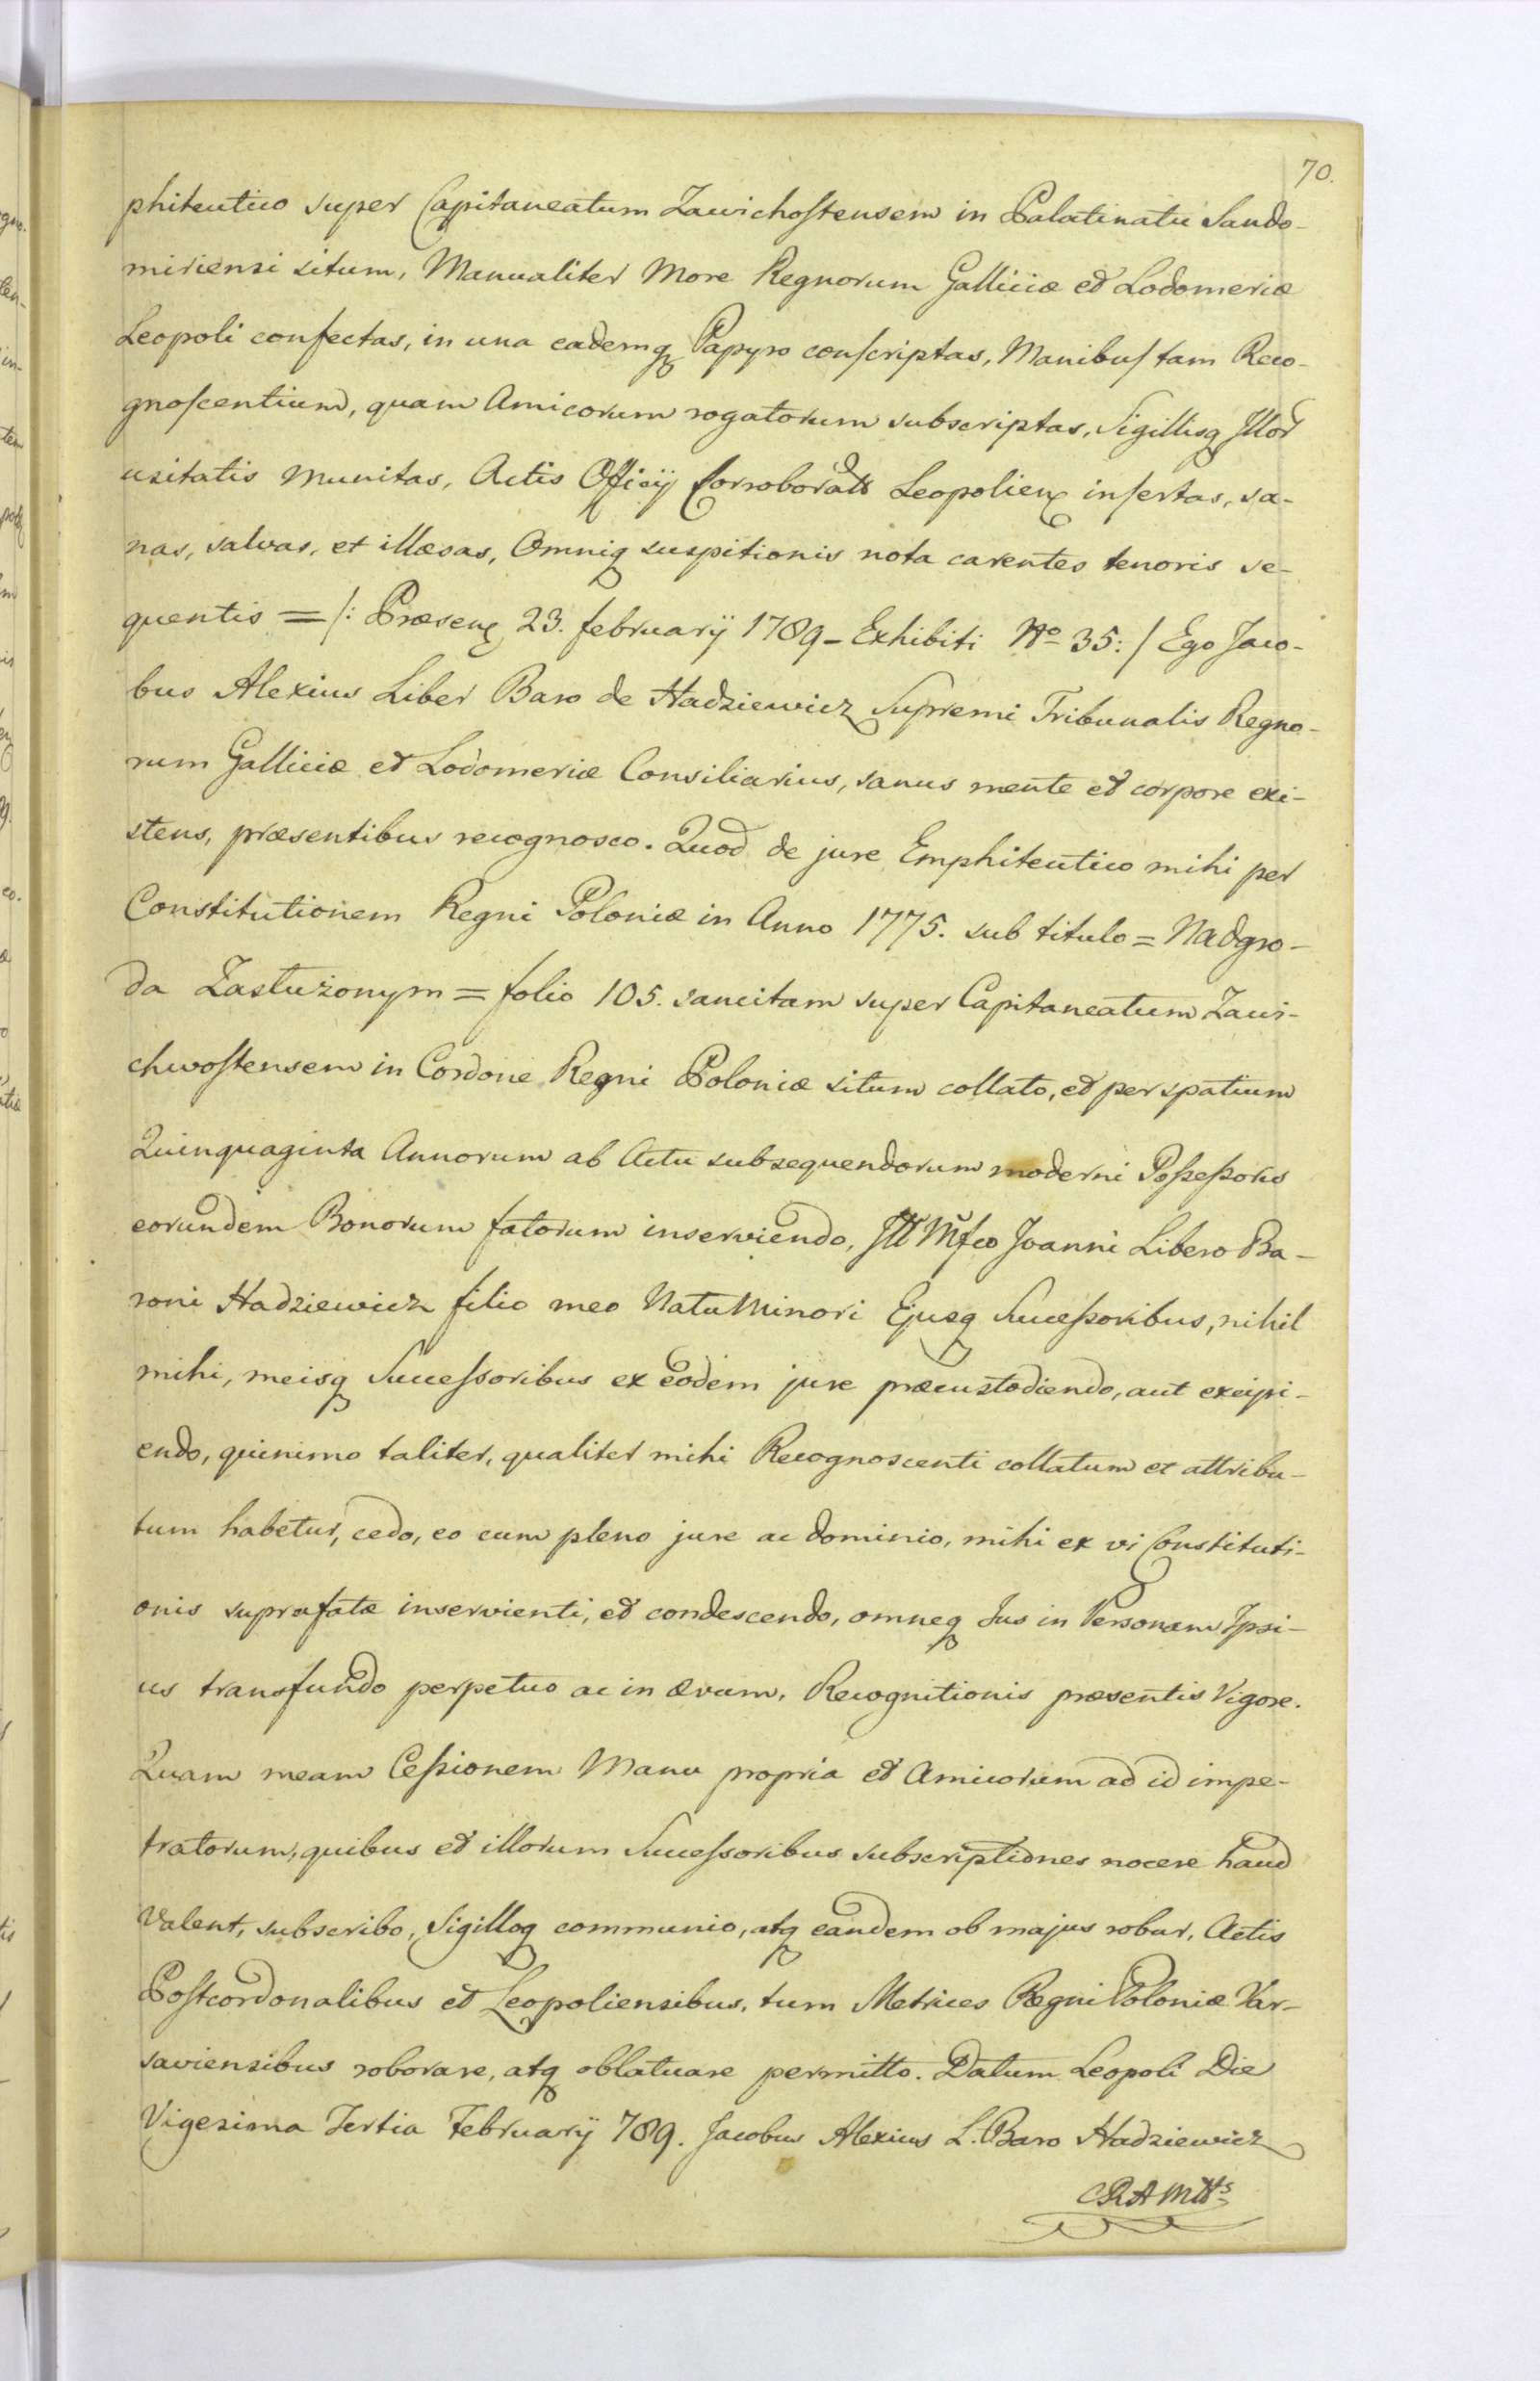 70.
phiteutico super Capitaneatum Zawichostensem in Palatinatu Sando-
miriensi situm, Manualiter More Regnorum Galliciæ et Lodomeriæ
Leopoli confectas, in una eademq Papyro conscriptas, Manibus tam Reco-
gnoscentium, quam Amicorum rogatorum subscriptas, Sigillisq Illor
usitatis munitas, Actis Officij Corroboratt Leopolien insertas, sa-
nas, salvas, et illæsas, Omniq suspitionis nota carentes tenoris se-
quentis = /: Præsen 23. february 1789 – Exhibiti No 35: / Ego Jaco-
bus Alexius Liber Baro de Hadziewicz Supremi Tribunalis Regno-
rum Galliciæ et Lodomeriæ Consiliarius, sanus mente et corpore exi-
stens, præsentibus recognosco. Quod de jure Emphiteutico mihi per
Constitutionem Regni Poloniæ in Anno 1775. sub titulo = Nadgro-
da Zasłużonym = folio 105. sancitam super Capitaneatum Zawi-
chwostensem in Cordone Regni Poloniæ situm collato, et per spatium
Quinquaginta Annorum ab Actu subsequendorum moderni Possessoris
eorundem Bonorum fatorum inserviendo, Ill Mfco Joanni Libero Ba-
roni Hadziewicz filio meo Natu Minori Ejusq Successoribus, nihil
mihi, meisq Successoribus ex eodem jure præcustodiendo, aut excipi-
endo, quinimo taliter, qualiter mihi Recognoscenti collatum et attribu-
tum habetur, cedo, eo cum pleno jure ac dominio, mihi ex vi Constituti-
onis suprafatæ inservienti, et condescendo, omneq Jus in Personam Ipsi-
us transfundo perpetuo ac in ævum, Recognitionis præsentis Vigore.
Quam meam Cessionem Manu propria et Amicorum ad id impe-
tratorum, quibus et illorum Successoribus subscriptiones nocere haud
valent, subscribo, Sigilloq communio, atq eandem ob majus robur, Actis
Postcordonalibus et Leopoliensibus, tum Metrices Regni Poloniæ Var-
saviensibus roborare, atq oblatuare permitto. Datum Leopoli Die
Vigesima Tertia February 789. Jacobus Alexius L. Baro Hadziewicz